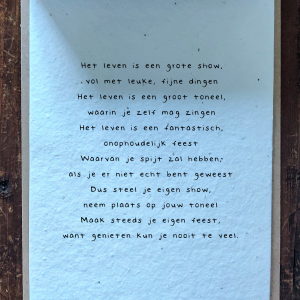 Het leven is een grote show,
vol met leuke, fijne dingen
Het leven is een groot toneel,
waarin je zelf mag zingen
Het leven is een fantastisch,
onophoudelijk feest
Waarvan je spijt zal hebben,
als je er niet echt bent geweest
Dus steel je eigen show,
neem plaats op jouw toneel
Maak steeds je eigen feest,
want genieten kun je nooit te veel.